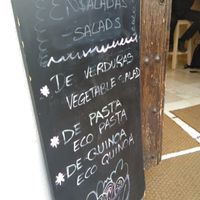 ENSALADAS
- SALADS
* DE VERDURAS
VEGETABLE SALAD
* DE PASTA
ECO PASTA
* DE QUINOA
ECO QUINOA